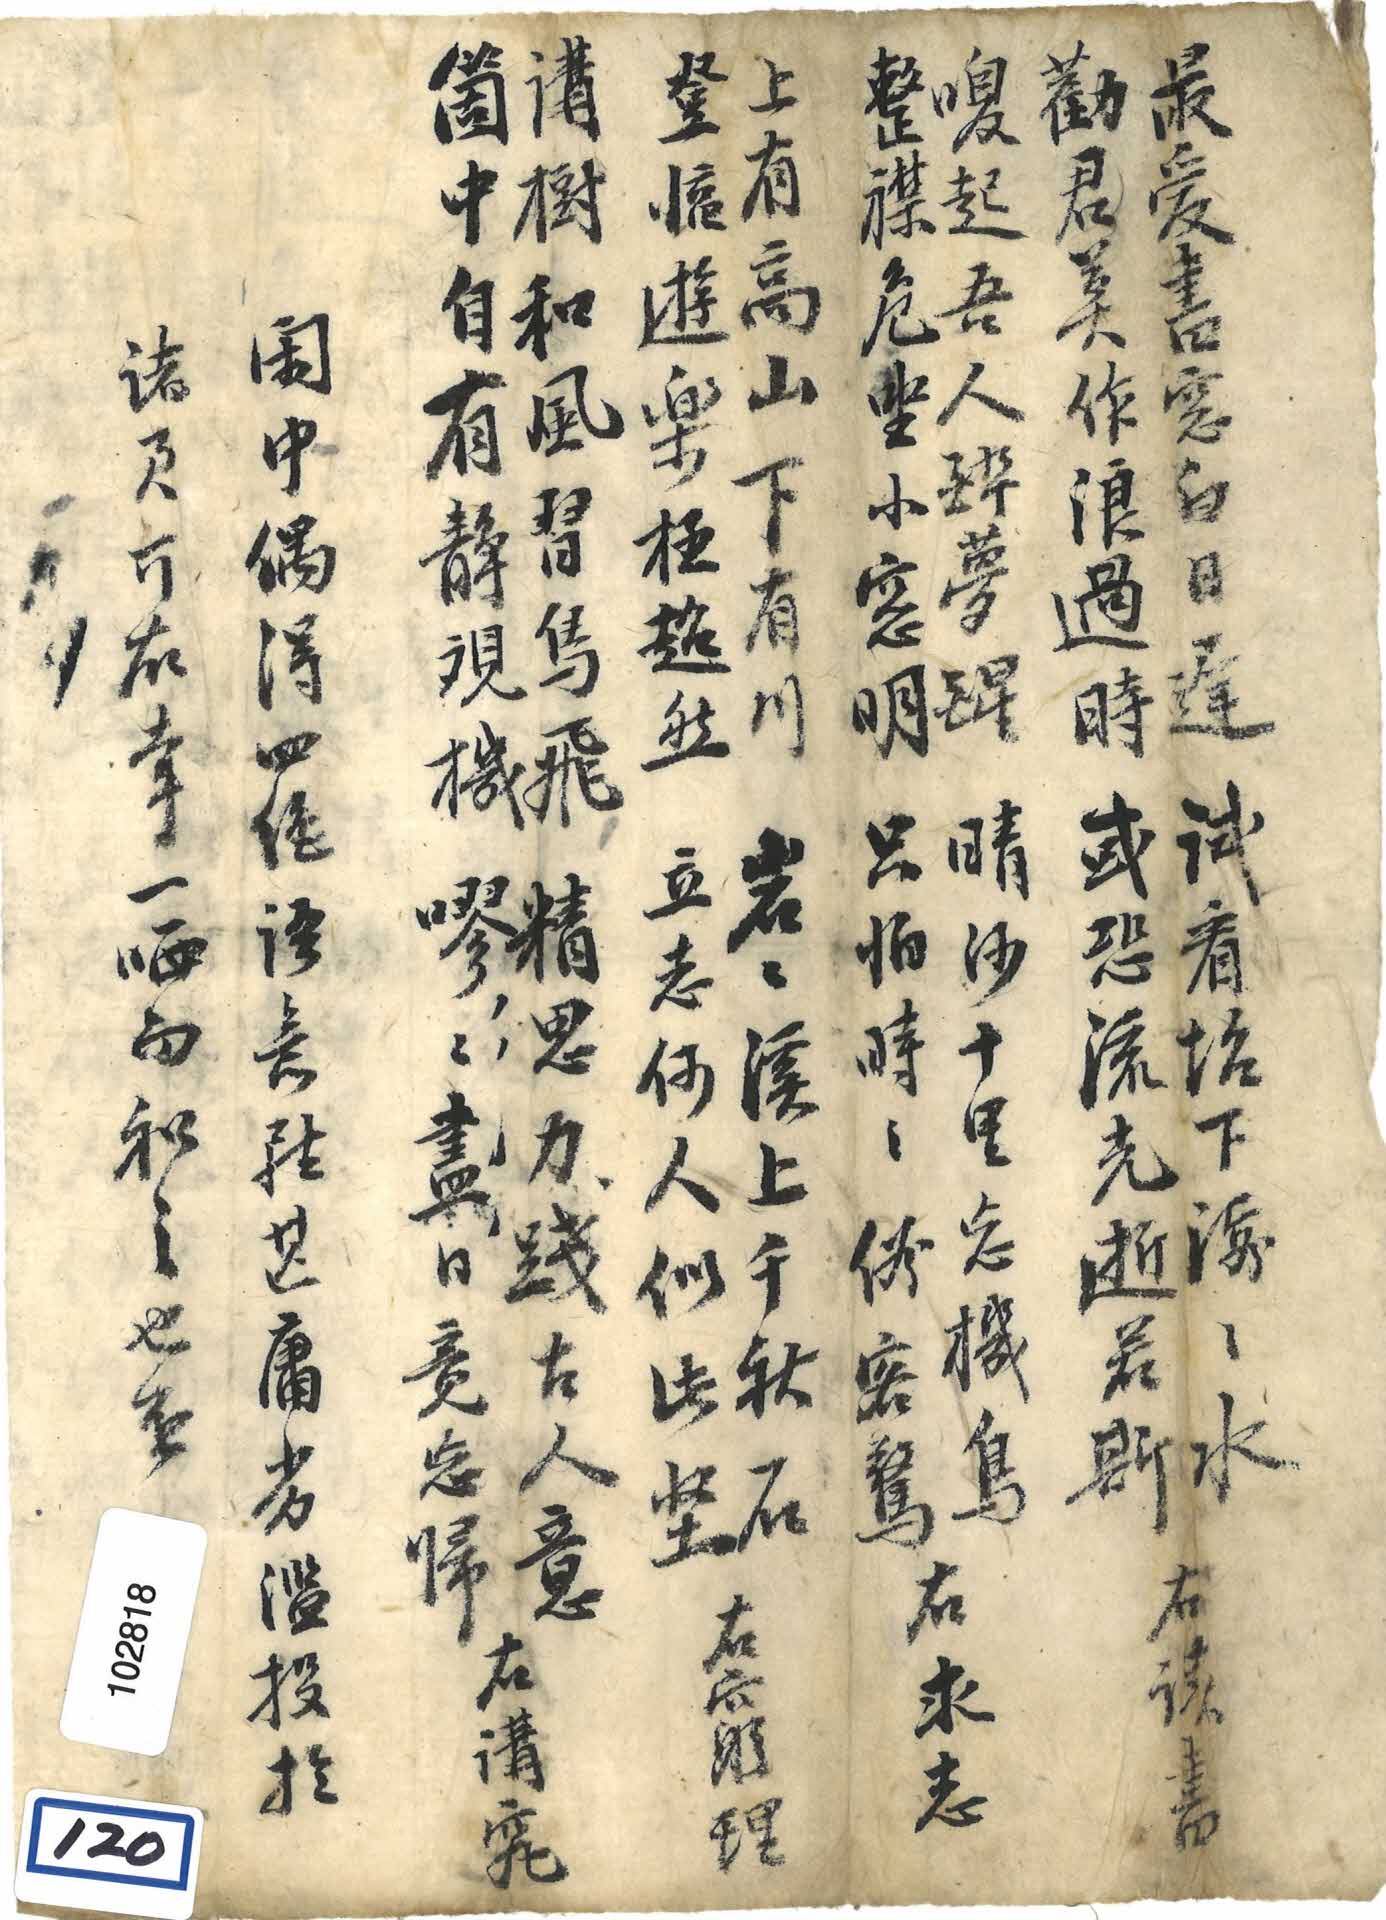 最愛書窓白日遲 試看坮下湯〻水
勸君莫作浪過時 或恐流光逝若斯 右讀書
喚起吾人醉夢醒 晴沙十里忘機鳥
整襟危坐小窓明 只怕時〻俗客驚 右求志
上有高山下有川 岩〻溪上千秋石
登臨遊樂極超然 立志何人似此堅 右窮理
講樹和風習鳥飛 精思力踐古人意
箇中自有靜觀機 嘐〻盡日竟忘歸 右講究
閑中偶得四絶語 甚庸劣濫投於
諸員可右幸一哂而和之也
102818
120